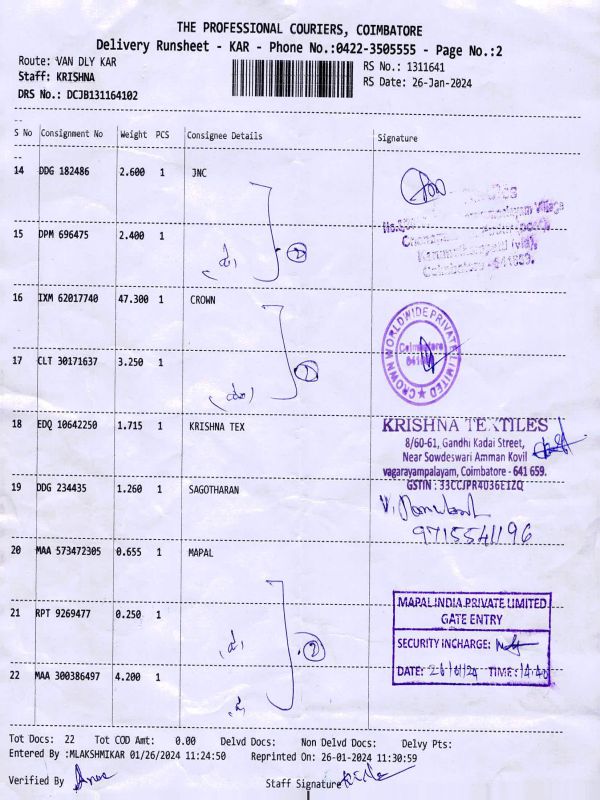 THE PROFESSIONAL COURIERS, COIMBATORE
Delivery Runsheet - KAR - Phone No.:0422-3505555 - Page No.:2
Route: VAN DLY KAR
RS No.: 1311641
Staff: KRISHNA
RS Date: 26-Jan-2024
DRS No.: DCJB131164102
S No Consignment No Weight PCS Consignee Details Signature
14 DDG 182486 2.600 1 JNC
15 DPM 696475 2.400 1
2
Coimbatore - 641659.
16 IXM 62017740 47.300 1 CROWN
CROWN WORLDWIDE PRIVATE LIMITED
Coimbatore
17 CLT 30171637 3.250 1
1
18 EDQ 10642250 1.715 1 KRISHNA TEX
KRISHNA TEXTILES
8/60-61, Gandhi Kadai Street,
Near Sowdeswari Amman Kovil
vagarayampalayam, Coimbatore - 641 659.
GSTIN : 33CCJPR4036E1ZQ
19 DDG 234435 1.260 1 SAGOTHARAN
9715541196
20 MAA 573472305 0.655 1 MAPAL
21 RPT 9269477 0.250 1
2
MAPAL INDIA PRIVATE LIMITED
GATE ENTRY
SECURITY INCHARGE:
DATE: 26/01/24 TIME: 14.40
22 MAA 300386497 4.200 1
Tot Docs: 22 Tot COD Amt: 0.00 Delvd Docs: Non Delvd Docs: Delvy Pts:
Entered By :MLAKSHMIKAR 01/26/2024 11:24:50 Reprinted On: 26-01-2024 11:30:59
Verified By
Staff Signature